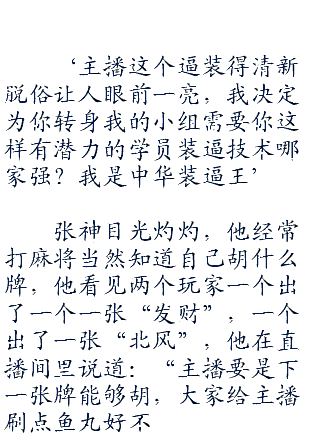 ‘主播这个逼装得清新
脱俗让人眼前一亮，我决定
为你转身我的小组需要你这
样有潜力的学员装逼技术哪
家强？我是中华装逼王’
张神目光灼灼，他经常
打麻将当然知道自己胡什么
牌，他看见两个玩家一个出
了一个一张“发财”，一个
出了一张“北风”，他在直
播间里说道：“主播要是下
一张牌能够胡，大家给主播
刷点鱼丸好不